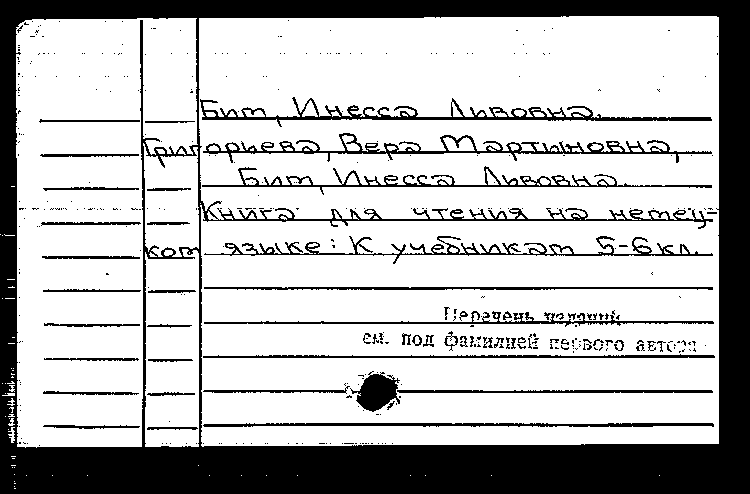 Бим, Инесса Львовна.
Григорьева, Вера Мартыновна,
Бим, Инесса Львовна.
Книга для чтения на немец-
ком языке: К учебникам 5-6 кл.
Перечень изданий
см. под фамилией первого автора